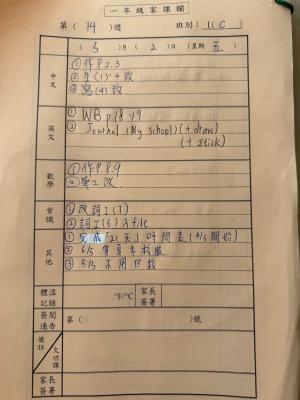 一年級家課欄
第( 14 )週 班別: 1(C)
( 5 )月( 2 )日 (星期 五)
中文
① 作P.2.3
② 年(1)十改
③ 寫(4)改
英文
① WB p.18-19
② Journal (My school) (+ draw)
(+ stick)
數學
① 作P.8.9
② 單工改
常識
① 改詞工(7)
② 詞工(6)入file
其他
① 完成「21天」時間表 (4/5開始)
② 6/5 穿夏季校服
③ 5/5 不用回校
體溫記錄
°F/°C
家長簽署
簽閱通告
第( )號
備註
欠功課
家長簽署